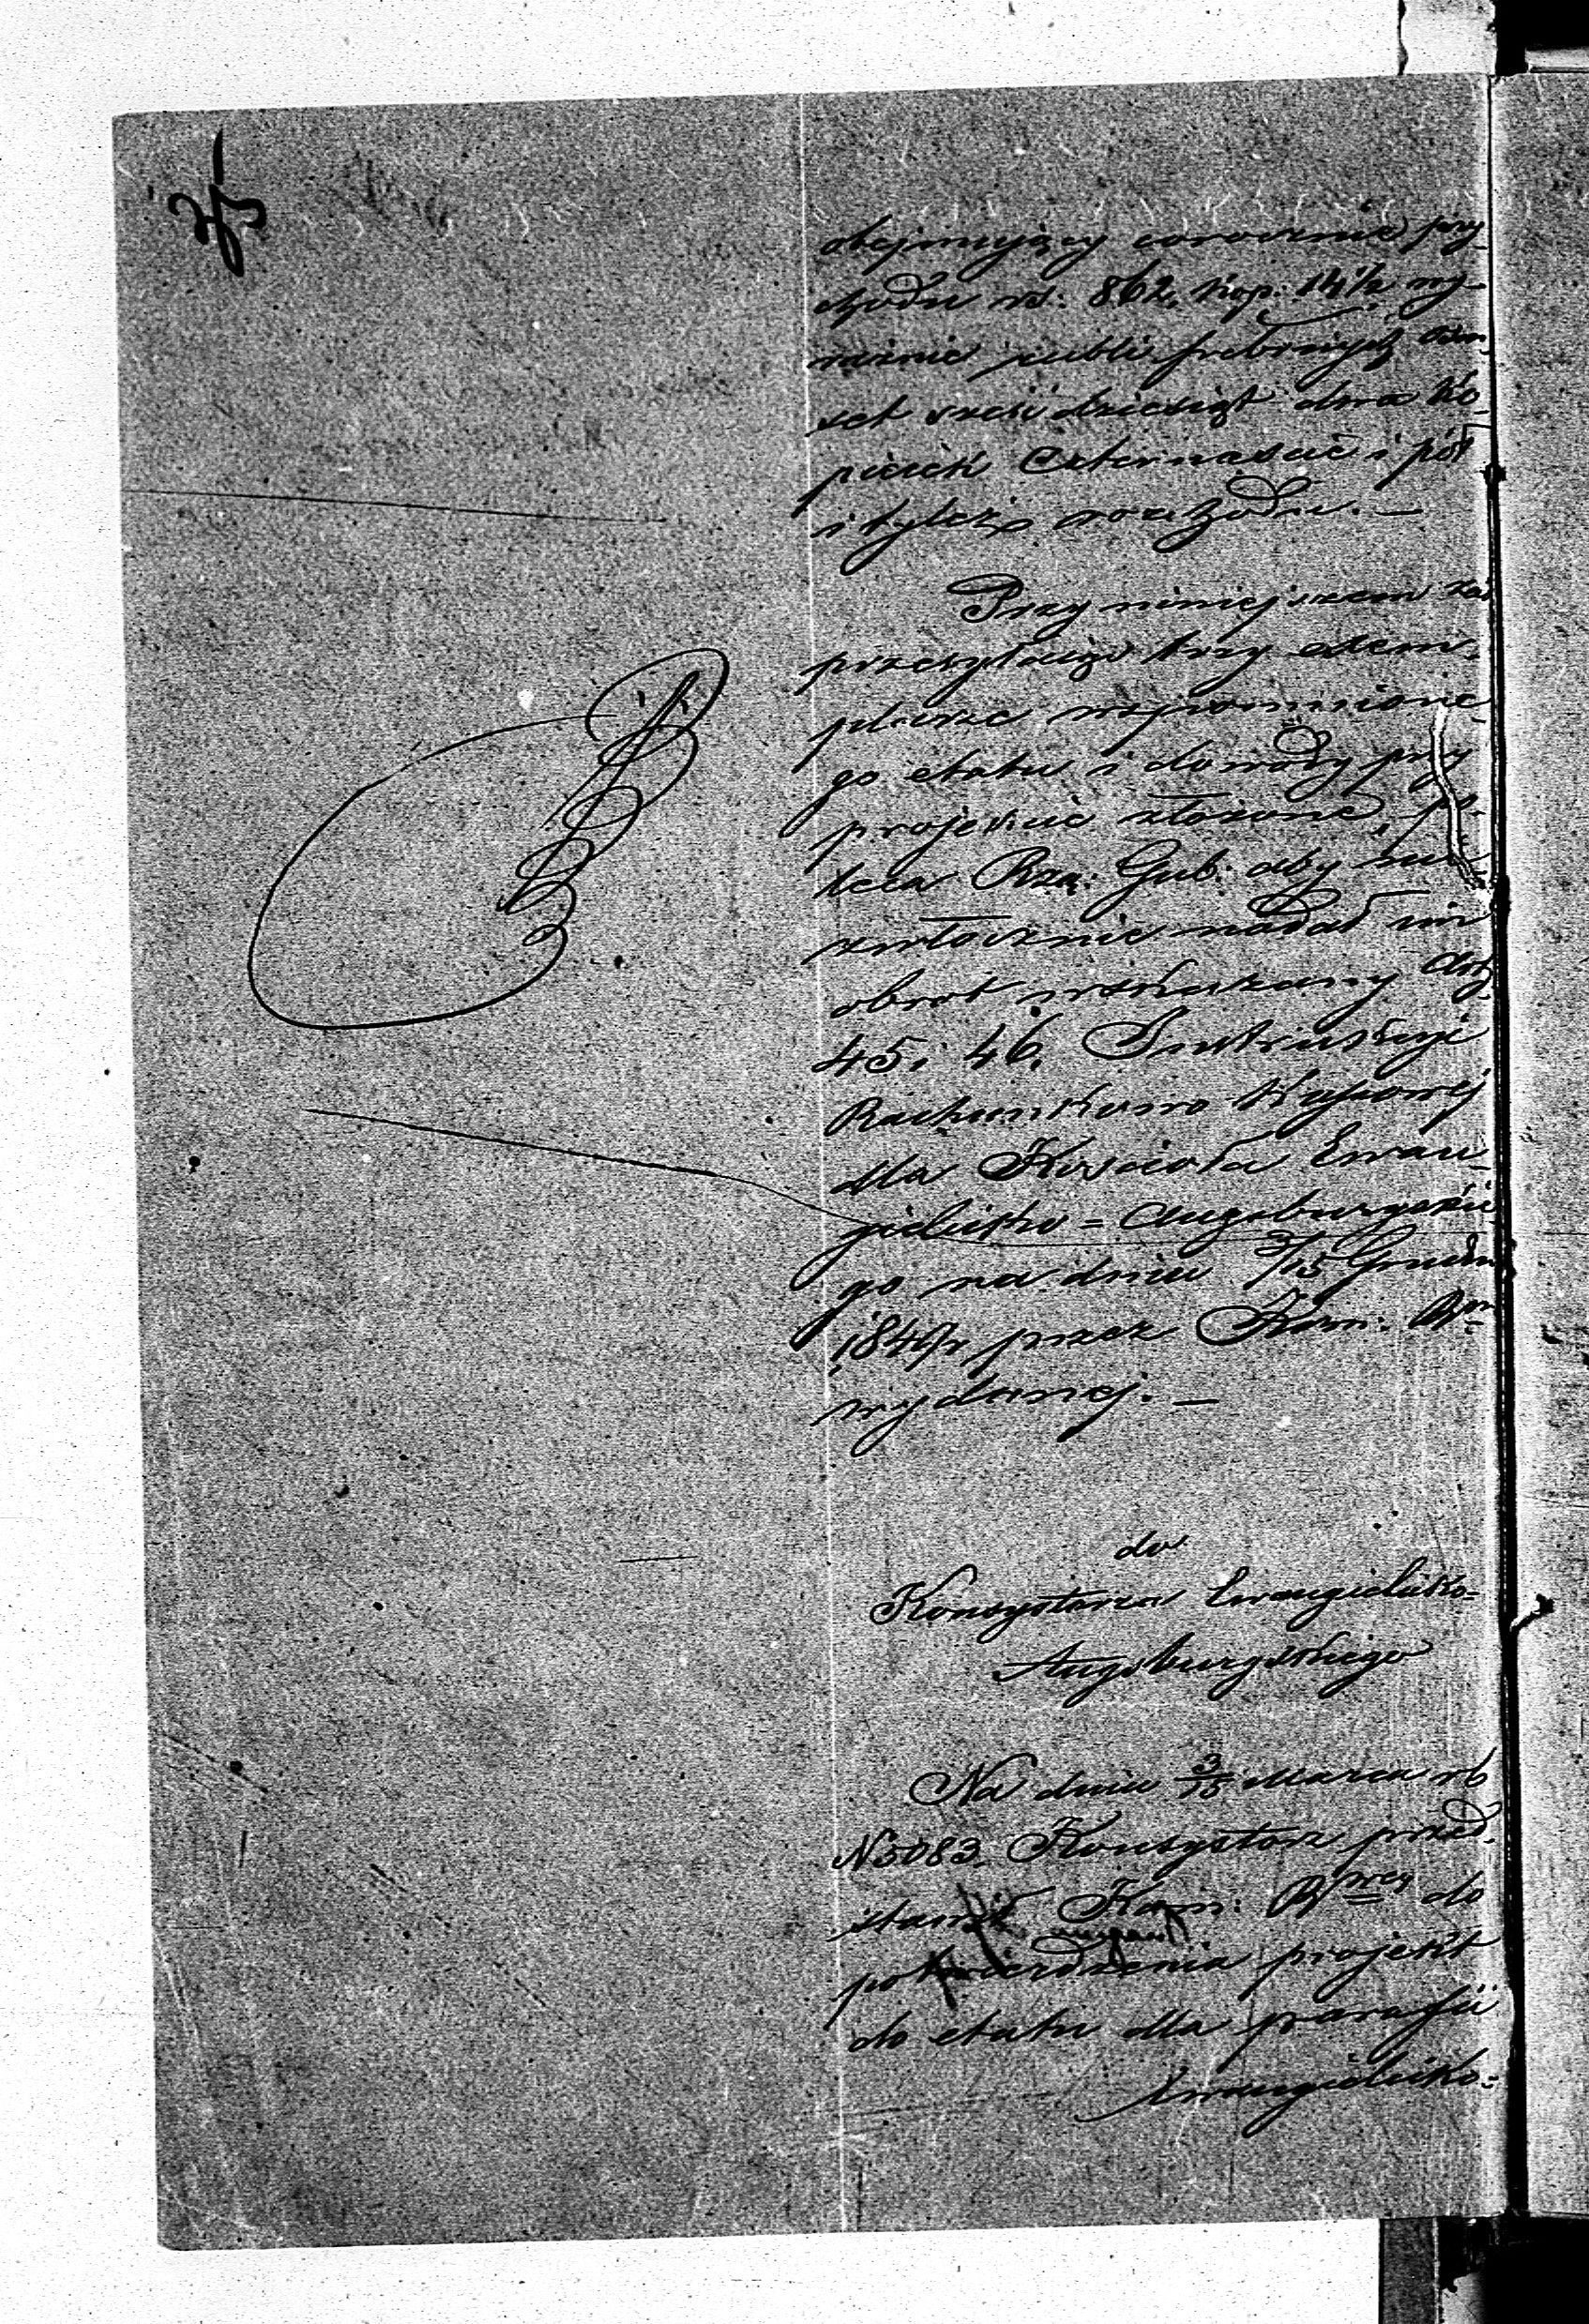 obejmujący corocznie przy-
chodu rs: 862. kop: 14½ wy-
raźnie rubli srebrnych ośm-
set sześćdziesiąt dwa ko-
piejek czternaście i pół
i tyleż rozchodu. —
Przy niniejszem zaś
przesyłając trzy exem-
plarze wspomnione-
go etatu i dowody przy
projekcie złożone, po-
leca Rzą: Gub: aby nie-
zwłocznie nadał im
obrót wskazany Art
45 i 46. Instrukcyi
Rachunkowo Kassowej
dla Kościoła Ewan-
gielicko = Augsburgskie-
go na dniu 3/15 Grudn
1849 r przez Kom: R
wydanej. —
do
Konsystorza Ewangielicko-
Augsburgskiego
Na dniu 3/15 Marca rb
N 5083. Konsystorz przed-
stawił Kom: Rząey do
potwierdzenia projekt
do etatu dla parafii
Ewangielicko-